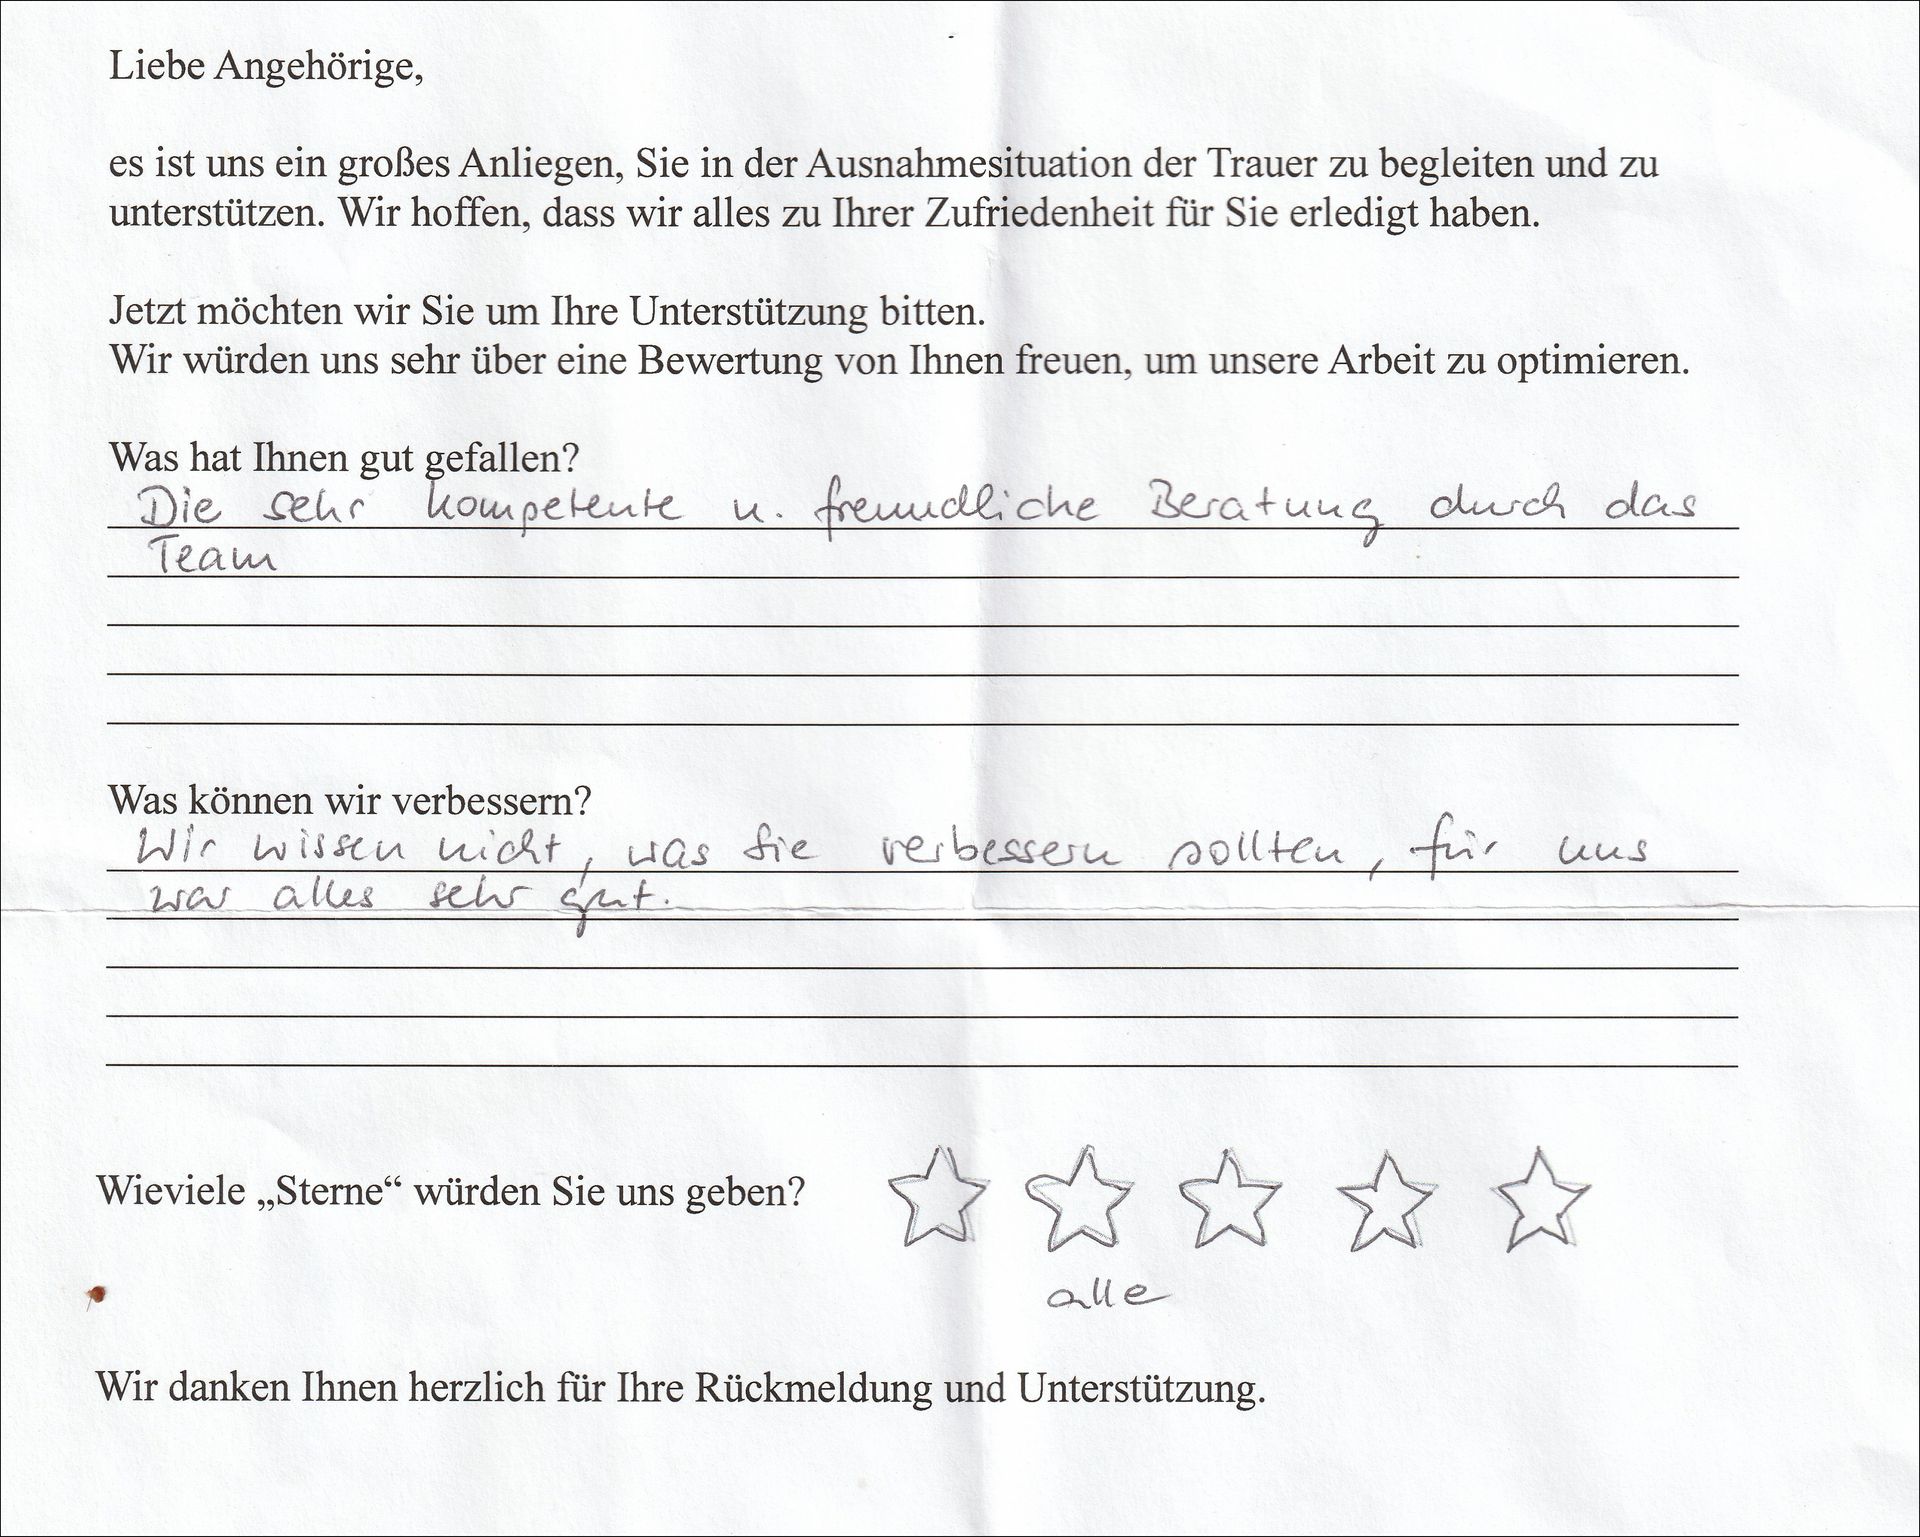 Liebe Angehörige,
es ist uns ein großes Anliegen, Sie in der Ausnahmesituation der Trauer zu begleiten und zu
unterstützen. Wir hoffen, dass wir alles zu Ihrer Zufriedenheit für Sie erledigt haben.
Jetzt möchten wir Sie um Ihre Unterstützung bitten.
Wir würden uns sehr über eine Bewertung von Ihnen freuen, um unsere Arbeit zu optimieren.
Was hat Ihnen gut gefallen?
Die sehr kompetente u. freundliche Beratung durch das
Team
Was können wir verbessern?
Wir wissen nicht, was Sie verbessern sollten, für uns
war alles sehr gut.
Wieviele „Sterne“ würden Sie uns geben?
alle
Wir danken Ihnen herzlich für Ihre Rückmeldung und Unterstützung.